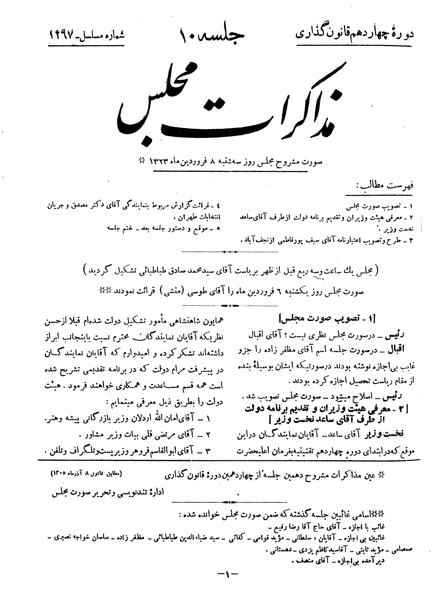 دورهٔ چهاردهم قانون گذاری
جلسه ۱۰
شماره مسلسل - ۱۲۹۷
مذاکرات مجلس
صورت مشروح مجلس روز سه‌شنبه ۸ فروردین ماه ۱۳۲۳
فهرست مطالب:
۱ - تصویب صورت مجلس
۲ - معرفی هیئت وزیران و تقدیم برنامه دولت از طرف آقای ساعد
نخست وزیر.
۳ - طرح و تصویب اعتبارنامه آقای سیف پور فاطمی از نجف آباد.
۴ - قرائت گزارش مربوط بنمایندگی آقای دکتر مصدق و جریان
انتخابات طهران.
۵ - موقع و دستور جلسه بعد - ختم جلسه
(مجلس یك ساعت و سه ربع قبل از ظهر بریاست آقای سیدمحمد صادق طباطبائی تشکیل گردید)
صورت مجلس روز یکشنبه ۶ فروردین ماه را آقای طوسی (منشی) قرائت نمودند
[۱ - تصویب صورت مجلس]
رئیس - در صورت مجلس نظری نیست؟ آقای اقبال
اقبال - در صورت جلسه اسم آقای مظفر زاده را جزو
غایب بی‌اجازه نوشته بودند در صورتیکه ایشان بوسیله بنده
از مقام ریاست تحصیل اجازه کرده بودند.
رئیس - اصلاح میشود - صورت مجلس تصویب شد.
[۲ - معرفی هیئت وزیران و تقدیم برنامه دولت
از طرف آقای ساعد نخست وزیر]
نخست وزیر آقای ساعد - آقایان نمایندگان در این
موقع که در ابتدای دوره چهاردهم تقنینیه بفرمان اعلیحضرت
همایون شاهنشاهی مأمور تشکیل دولت شده‌ام قبلا از حسن
نظریکه آقایان نمایندگان محترم نسبت باینجانب ابراز
داشته‌اند تشکر کرده و امیدوارم که آقایان نمایندگان
در پیشرفت مرام دولت که در برنامه تقدیمی تشریح شده
است همه قسم مساعدت و همکاری خواهند فرمود. هیئت
دولت را بطریق ذیل معرفی مینمایم:
۱ - آقای امان الله اردلان وزیر بازرگانی پیشه و هنر.
۲ - آقای مرتضی قلی بیات وزیر مشاور.
۳ - آقای ابوالقاسم فروهر وزیر پست و تلگراف و تلفن.
عین مذاکرات مشروح دهمین جلسه از چهاردهمین دورهٔ قانون گذاری
(مطابق قانون ۸ آذرماه ۱۳۰۵)
اداره تندنویسی و تحریر صورت مجلس
اسامی غائبین جلسه گذشته که ضمن صورت مجلس خوانده شده:
غائب با اجازه - آقای حاج آقا رضا رفیع -
غائبین بی اجازه - آقایان: سلطانی - مؤید قوامی - کفائی - سید ضیاءالدین طباطبائی - مظفر زاده - ساسان خواجه نصیری -
صمصامی - مؤید ثابتی - آقاسید کاظم یزدی - دهستانی.
دیرآمده بی‌اجازه - آقای منصف.
-۱-